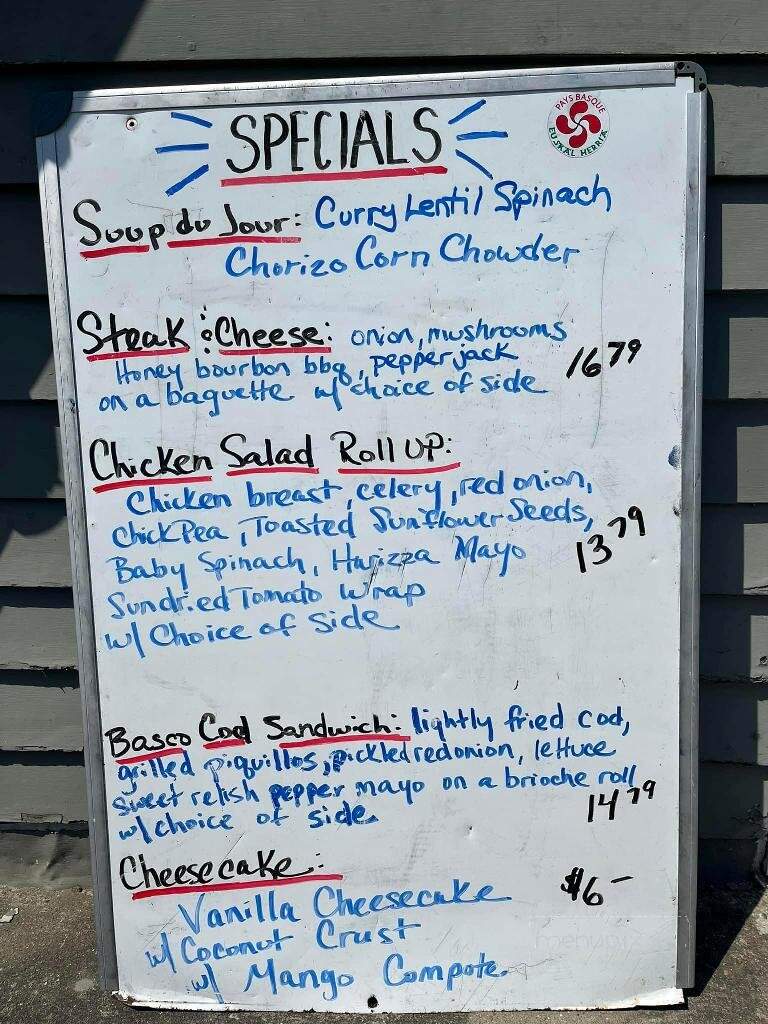 SPECIALS
PAYS BASQUE
EUSKAL HERRIA
Soup du Jour: Curry Lentil Spinach
Chorizo Corn Chowder
Steak & Cheese: onion, mushrooms
Honey bourbon bbq, pepper jack
on a baguette w/ choice of side 16 79
Chicken Salad Roll UP:
Chicken breast, celery, red onion,
Chick Pea, Toasted Sunflower Seeds,
Baby Spinach, Harizza Mayo 13 79
Sundried Tomato Wrap
w/ Choice of Side
Basco Cod Sandwich: lightly fried cod,
grilled piquillos, pickled red onion, lettuce
sweet relish pepper mayo on a brioche roll
w/ choice of side. 14 79
Cheesecake: $6-
Vanilla Cheesecake
w/ Coconut Crust
w/ Mango Compote.